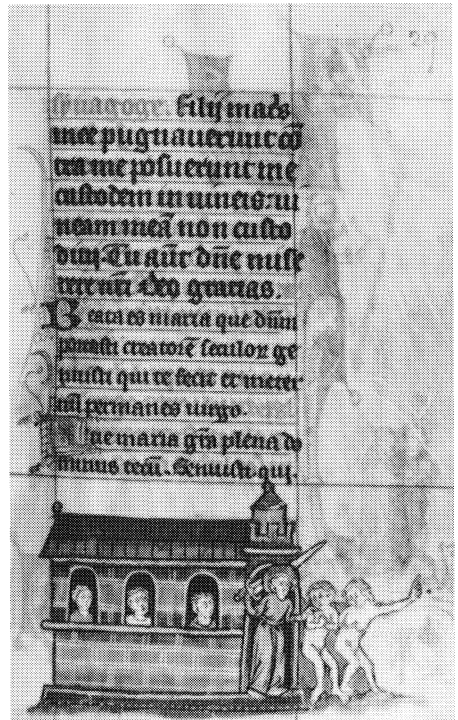 29
synagoge. filij mat̄s
mee pugnauerunt cō
tra me posuerunt me
custodem in uineis: ui
neam meā non custo
diui. Tu aūt dn̄e mise
rere nr̄i. Deo gracias.
Beata es maria que dn̄m
portasti creatorē seculoꝝ ge
nuisti qui te fecit et in eter
nū permanes uirgo.
Aue maria gr̄a plena do
minus tecū. Genuisti qui.